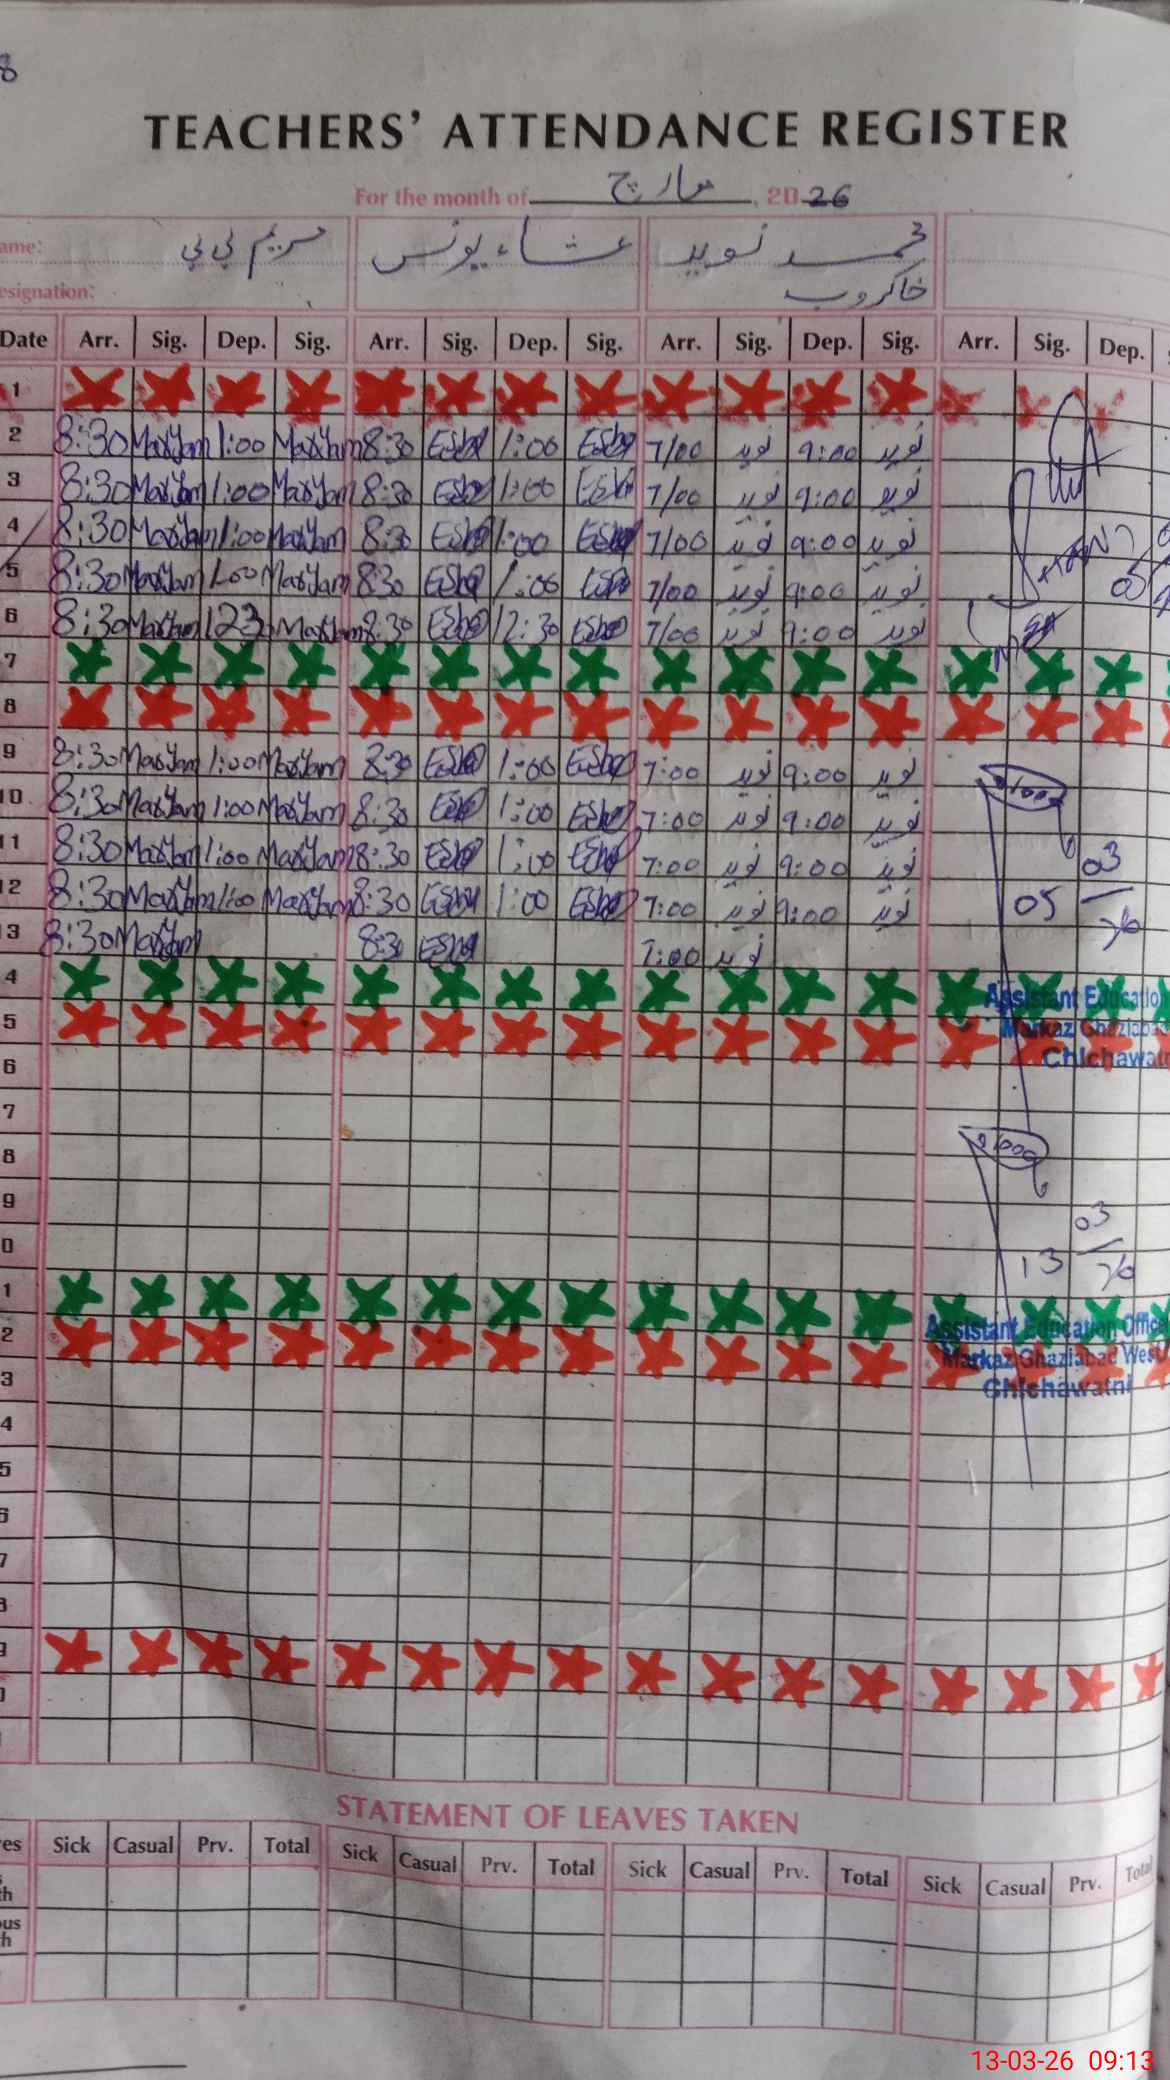 8
TEACHERS' ATTENDANCE REGISTER
For the month of مارچ, 2026
ame: مریم بی بی عشاء یونس محمد نوید
esignation: خاکروب
Date Arr. Sig. Dep. Sig. Arr. Sig. Dep. Sig. Arr. Sig. Dep. Sig. Arr. Sig. Dep.
1
2 8:30 Maryam 1:00 Maryam 8:30 Esha 1:00 Esha 7/00 نوید 9:00 نوید
3 8:30 Maryam 1:00 Maryam 8:30 Esha 1:00 Esha 7/00 نوید 9:00 نوید
4 8:30 Maryam 1:00 Maryam 8:30 Esha 1:00 Esha 7/00 نوید 9:00 نوید
5 8:30 Maryam 1:00 Maryam 8:30 Esha 1:00 Esha 7/00 نوید 9:00 نوید
6 8:30 Maryam Maryam 8:30 Esha 12:30 Esha 7/00 نوید 9:00 نوید
7
8
9 8:30 Maryam 1:00 Maryam 8:30 Esha 1:00 Esha 7:00 نوید 9:00 نوید
10 8:30 Maryam 1:00 Maryam 8:30 Esha 1:00 Esha 7:00 نوید 9:00 نوید
11 8:30 Maryam 1:00 Maryam 8:30 Esha 1:00 Esha 7:00 نوید 9:00 نوید
03
12 8:30 Maryam 1:00 Maryam 8:30 Esha 1:00 Esha 7:00 نوید 9:00 نوید
05
13 8:30 Maryam 8:30 Esha 7:00 نوید
4
Assistant Educatio
5
Markaz Ghaziabad
Chichawatn
6
7
8
9
03
0
13
1
2
Assistant Education Office
Markaz Ghaziabad West
3
Chichawatni
4
5
6
7
8
9
0
STATEMENT OF LEAVES TAKEN
es Sick Casual Prv. Total Sick Casual Prv. Total Sick Casual Prv. Total Sick Casual Prv. Total
th
ous
h
13-03-26 09:13